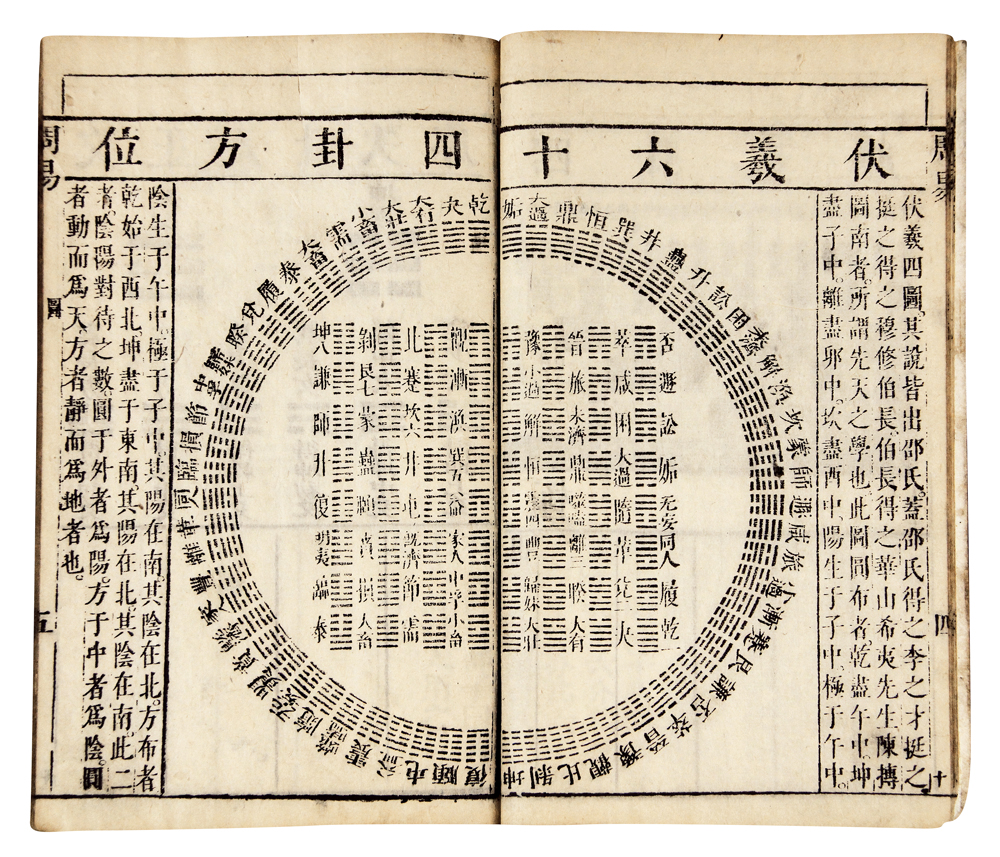 周易
四
伏羲六十四卦方位
伏羲四圖。其說皆出邵氏。蓋邵氏得之李之才挺之
挺之得之穆修伯長。伯長得之華山希夷先生陳摶
圖南者。所謂先天之學也。此圖圓布者。乾盡午中。坤
盡子中。離盡卯中。坎盡酉中。陽生于子中。極于午中。
姤 大過 鼎 恒 巽 井 蠱 升 訟 困 未濟 解 渙 坎 蒙 師 遯 咸 旅 小過 漸 蹇 艮 謙 否 萃 晉 豫 觀 比 剝 坤
乾 夬 大有 大壯 小畜 需 大畜 泰 履 兌 睽 歸妹 中孚 節 損 臨 同人 革 離 豐 家人 既濟 賁 明夷 无妄 隨 噬嗑 震 益 屯 頤 復
否 遯 訟 姤 无妄 同人 履 乾一
萃 咸 困 大過 隨 革 兌二 夬
晉 旅 未濟 鼎 噬嗑 離三 睽 大有
豫 小過 解 恒 震四 豐 歸妹 大壯
觀 漸 渙 巽五 益 家人 中孚 小畜
比 蹇 坎六 井 屯 既濟 節 需
剝 艮七 蒙 蠱 頤 賁 損 大畜
坤八 謙 師 升 復 明夷 臨 泰
陰生于午中。極于子中。其陽在南。其陰在北。方布者
乾始于西北。坤盡于東南。其陽在北。其陰在南。此二
者。陰陽對待之數。圓于外者爲陽。方于中者爲陰。圓
者動而爲天。方者靜而爲地者也。
周易
圖
五